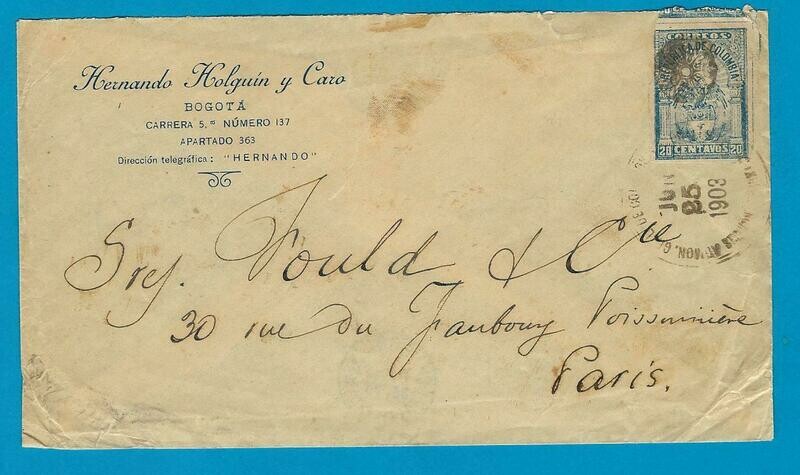 Hernando Holguín y Caro
BOGOTÁ
CARRERA 5.ª NÚMERO 137
APARTADO 363
Dirección telegráfica: "HERNANDO"
CORREOS
REPUBLICA DE COLOMBIA
20 CENTAVOS 20
JUN
25
1903
Srs. Fould & Cie
30 rue du Faubourg Poissonnière
Paris.